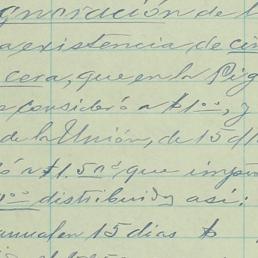 gnoriación de l
a existencia, de cin
cera, que en la Pig
s consideró a $1.00, y
de la Unión, de 15 d/
ó a $1.50 que impo
distribuidos así:
anual en 15 días $